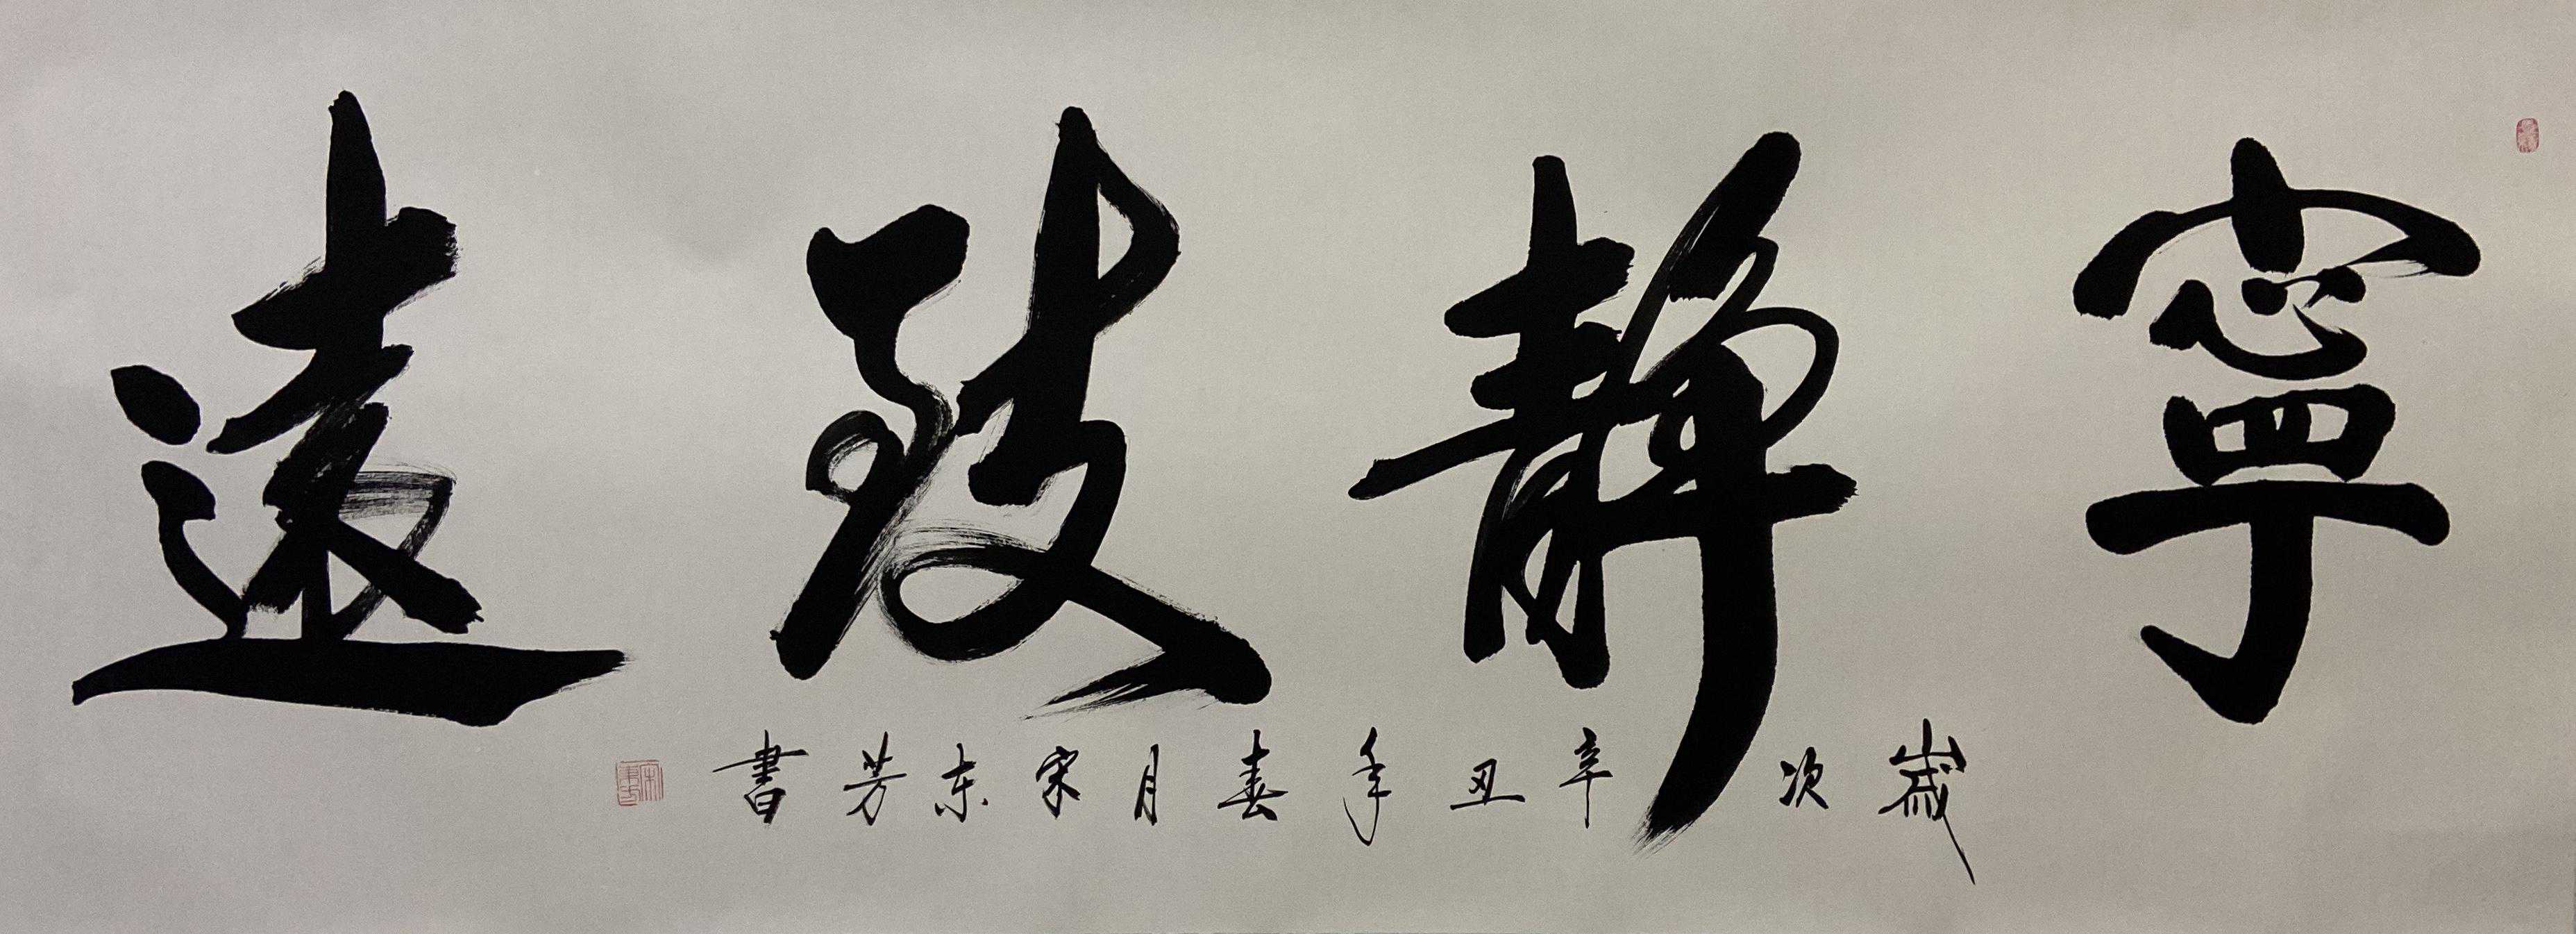 寧靜致遠
歲次辛丑年春月宋东芳書